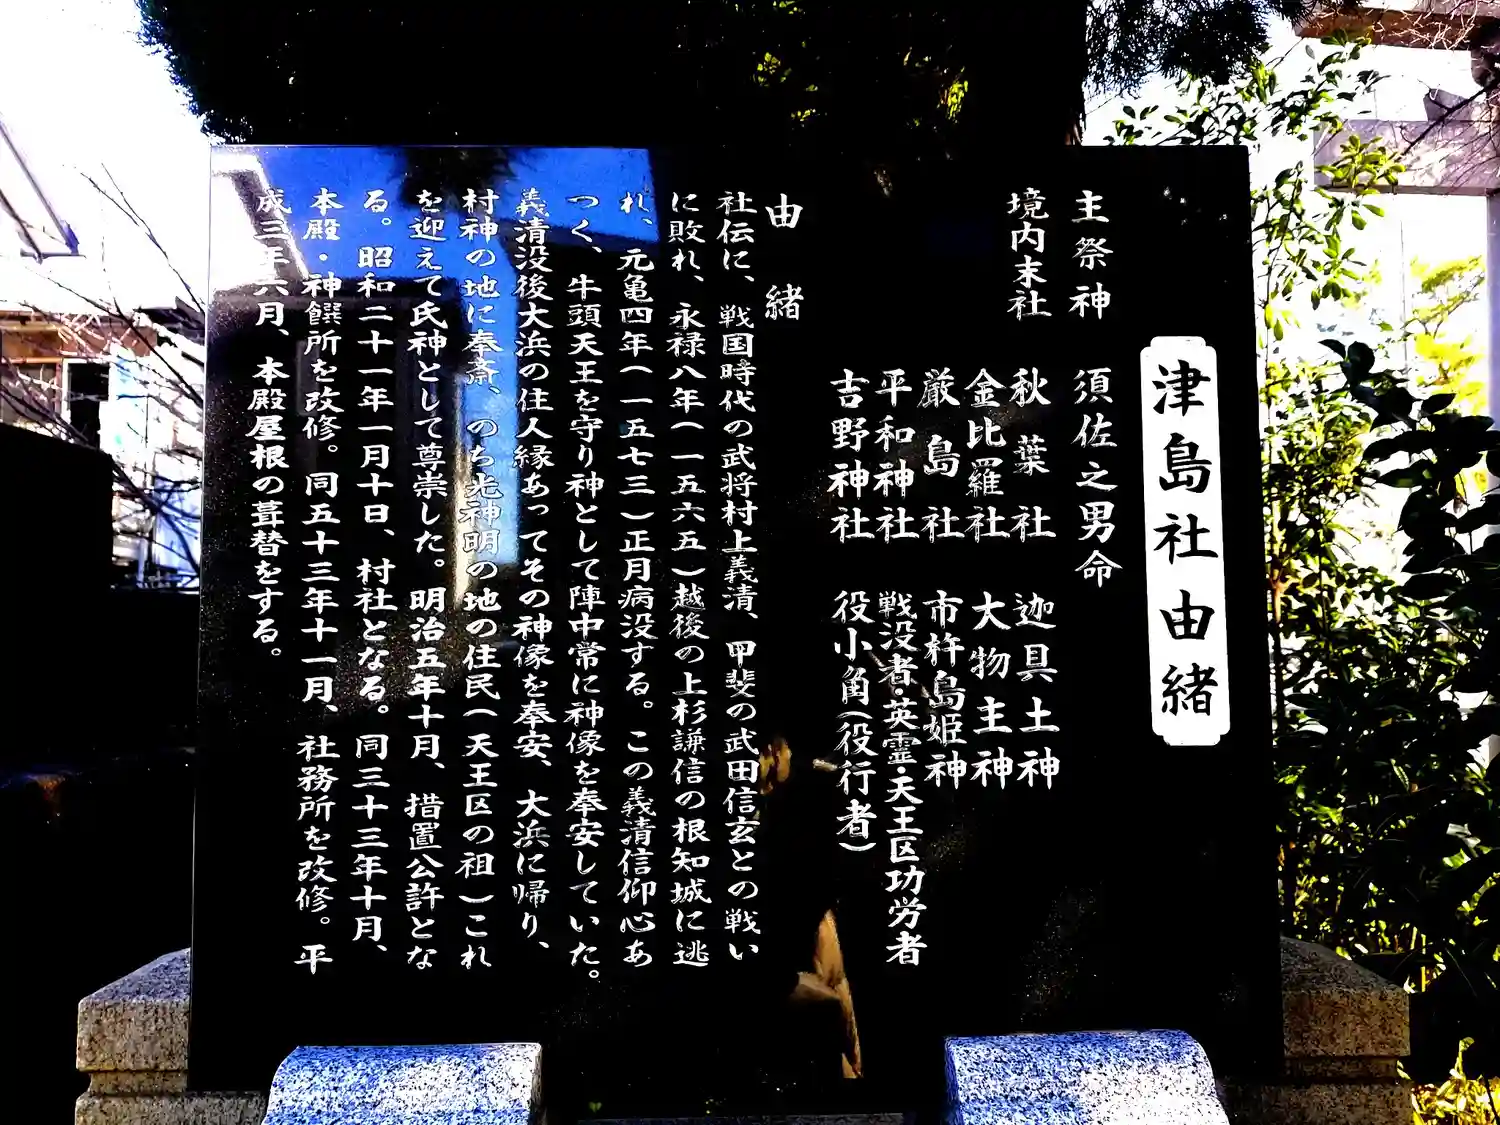 津島社由緒
主祭神 須佐之男命
境内末社 秋葉社 迦具土神
金比羅社 大物主神
厳島社 市杵島姫神
平和神社 戦没者・英霊・天王区功労者
吉野神社 役小角(役行者)
由緒
社伝に、戦国時代の武将村上義清、甲斐の武田信玄との戦い
に敗れ、永禄八年(一五六五)越後の上杉謙信の根知城に逃
れ、元亀四年(一五七三)正月病没する。この義清信仰心あ
つく、牛頭天王を守り神として陣中常に神像を奉安していた。
義清没後大浜の住人縁あってその神像を奉安、大浜に帰り、
村神の地に奉斎、のち光神明の地の住民(天王区の祖)これ
を迎えて氏神として尊崇した。明治五年十月、措置公許とな
る。昭和二十一年一月十日、村社となる。同三十三年十月、
本殿・神饌所を改修。同五十三年十一月、社務所を改修。平
成三年六月、本殿屋根の葺替をする。